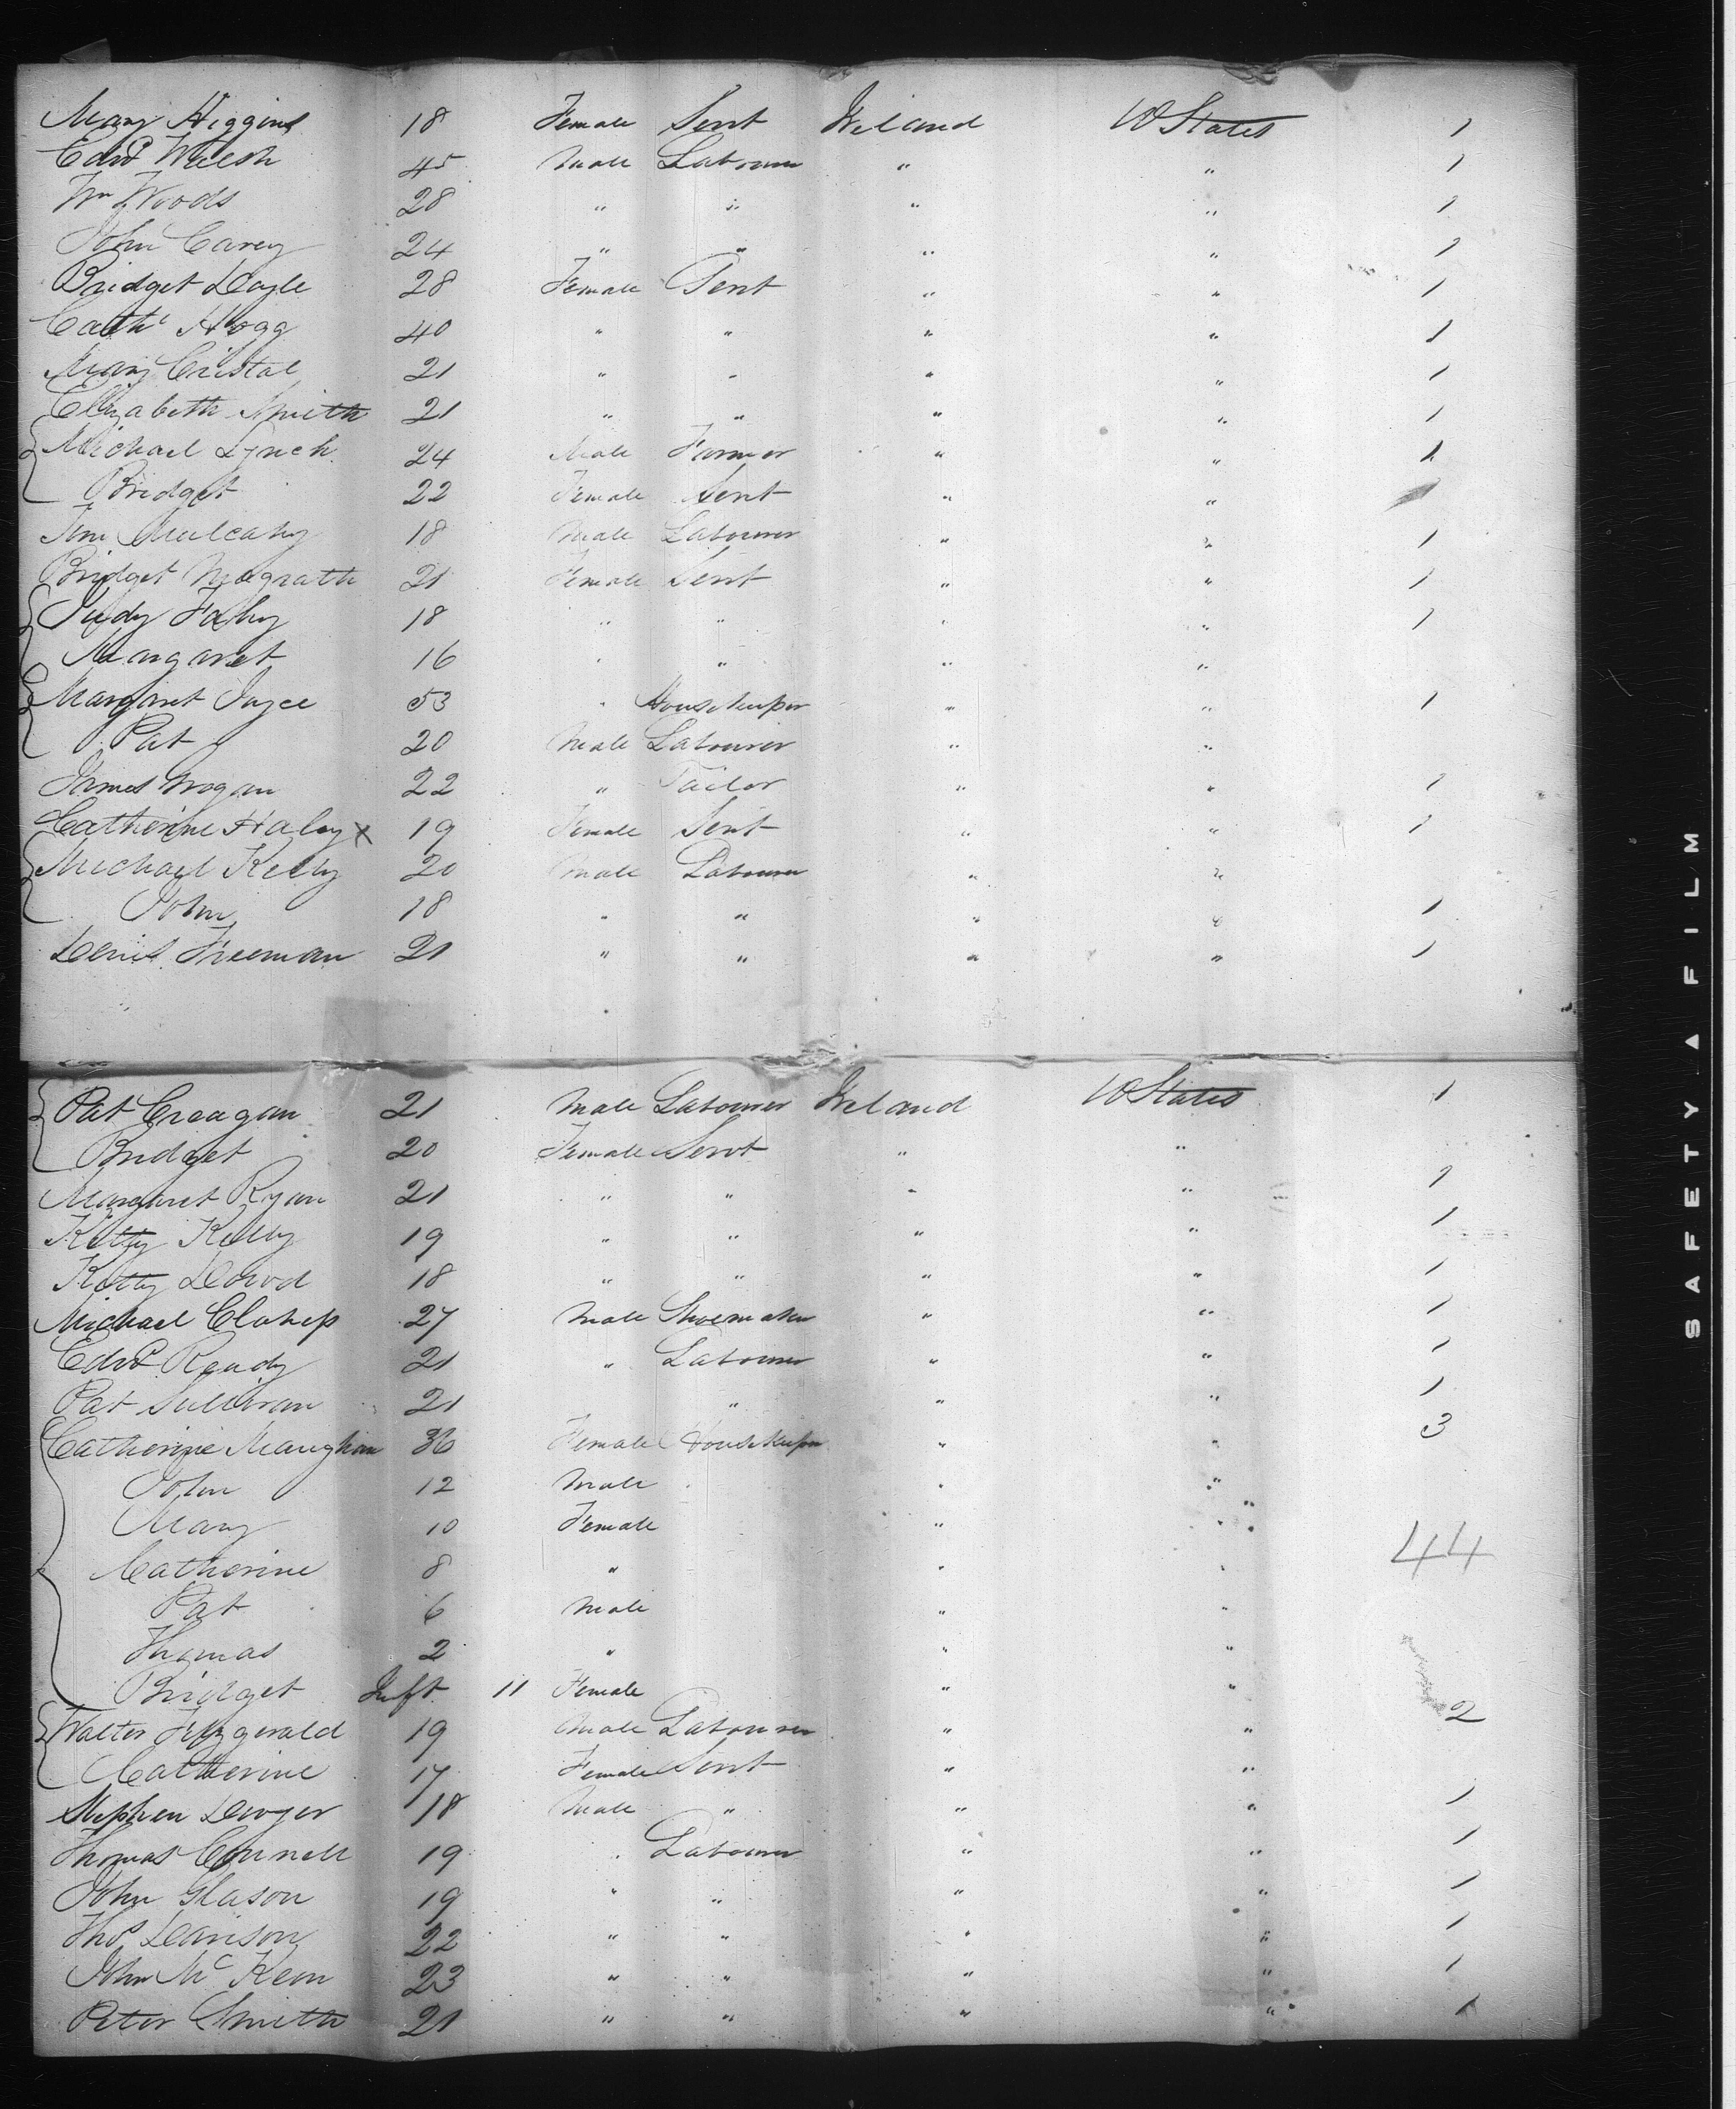 Mary Higgins 18 Female Sert Ireland U States 1
Edwd Walsh 45 Male Labourer " " 1
Wm Woods 28 " " " " 1
John Carey 24 " " " " 1
Bridget Doyle 28 Female Sert " " 1
Cathe Hogg 40 " " " " 1
Mary Cristal 21 " " " " 1
Elizabeth Smith 21 " " " " 1
Michael Lynch 24 Male Farmer " " 1
Bridget 22 Female Sert " "
Mulcahy 18 Male Labourer " " 1
Bridget Magrath 21 Female Sert " " 1
Judy Fahy 18 " " " " 1
Margaret 16 " " " "
Margaret Joyce 53 " Housekeeper " " 1
Pat 20 Male Labourer " "
James Wogan 22 " Tailor " " 1
Catherine Haley x 19 Female Sert " " 1
Michael Kelly 20 Male Labourer " "
John 18 " " " " 1
Denis Freeman 21 " " " " 1
Pat Creagan 21 Male Labourer Ireland U States 1
Bridget 20 Female Servt " "
Margaret Ryan 21 " " " " 1
Kitty Kelly 19 " " " " 1
Kitty Dowd 18 " " " " 1
Michael 27 Male Shoemaker " " 1
Edwd Ready 21 " Labourer " " 1
Pat Sullivan 21 " " " 1
Catherine Maughan 36 Female Housekeeper " " 3
John 12 Male " "
Mary 10 Female " "
Catherine 8 " " " 44
Pat 6 Male " "
Thomas 2 " " "
Bridget Inft 11 Female " "
Walter Fitzgerald 19 Male Labourer " " 2
Catherine 17 Female Sert " "
Stephen Dwyer 18 Male " " " 1
Thomas Connell 19 " Labourer " " 1
John Glason 19 " " " " 1
Thos Davison 22 " " " " 1
John McKeon 23 " " " " 1
Peter Smith 21 " " " " 1
SAFETY A FILM